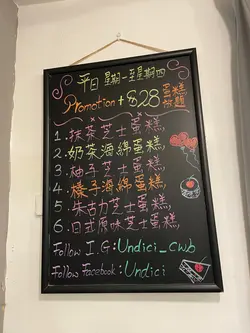 平日 星期一至星期四
Promotion + $28 蛋糕
任選
1. 抹茶芝士蛋糕,
2. 奶茶海綿蛋糕,
3. 柚子芝士蛋糕,
4. 橘子海綿蛋糕,
5. 朱古力芝士蛋糕,
6. 日式原味芝士蛋糕,
Follow I.G: Undici_cwb
Follow Facebook: Undici